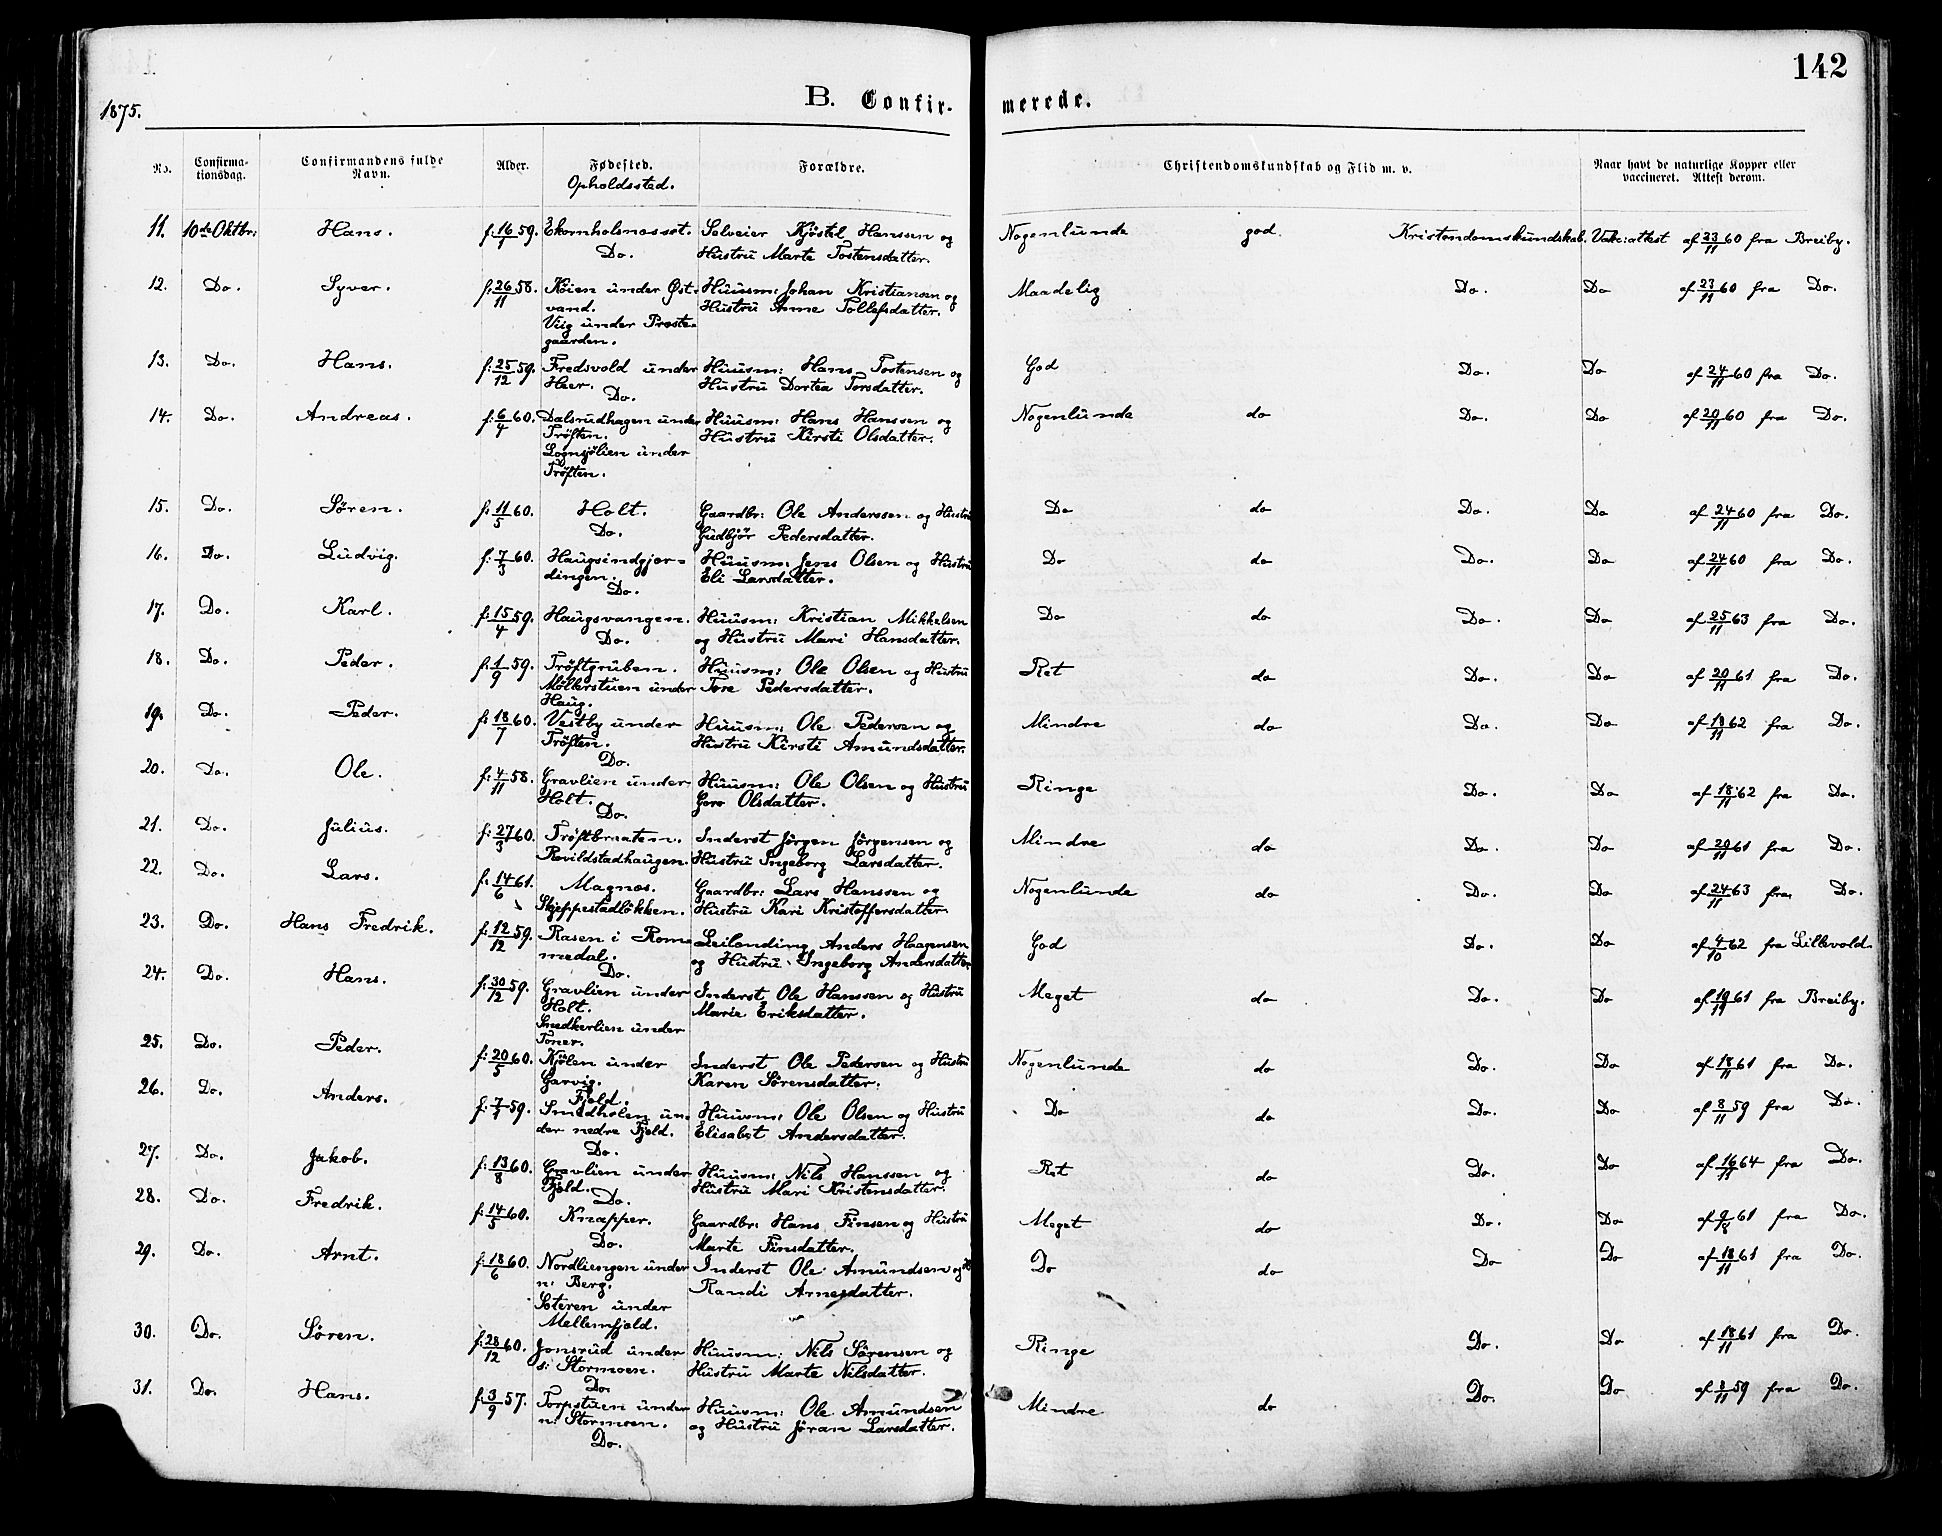 142
1875.
B. Confir-
merede.
No.
Confirma-
tionsdag.
Confirmandens fulde
Navn.
Alder.
Fødested.
Opholdssted.
Forældre.
Christendomskundskab og Flid m. v.
Naar havt de naturlige Kopper eller
vaccineret. Attest derom.
11. 10de Oktbr: Hans. f: 16/1 59. Ekornholsmosset. Selveier Kjøstel Hanssen og Nogenlunde god. Kristendomskundskab. Vakc:attest af 23/11 60 fra Breiby.
Do. Hustru Marte Tostensdatter.
12. Do. Syver. f: 26/11 58. Koien under Øst- Huusm: Johan Kristiansen og Maadelig Do. Do af 23/11 60 fra Do.
vand. Hustru Anne Tollefsdatter.
Viig under Preste-
gaarden.
13. Do. Hans. f: 25/12 59. Fredsvold under Huusm: Hans Tostensen og God Do. Do af 24/11 60 fra Do.
Heer. Hustru Dortea Torsdatter.
Do.
14. Do. Andreas. f: 6/4 60. Dalsrudhagen under Huusm: Hans Hanssen og Nogenlunde do Do. Do af 20/11 60 fra Do.
Trøften. Hustru Kirsti Olsdatter.
Lognsjølien under
Trøften.
15. Do. Søren. f: 11/5 60. Holt. Gaardbr: Ole Anderssen og Hustru Do do Do. Do af 24/11 60 fra Do.
Do. Gudbjør Pedersdatter.
16. Do. Ludvig. f: 7/3 60. Haugsindgjær- Huusm: Jens Olsen og Hustru Do do Do. Do af 24/11 60 fra Do.
dingen. Eli Larsdatter.
Do.
17. Do. Karl. f: 15/4 59. Haugsvangen. Huusm: Kristian Mikkelsen Do do Do. Do af 25/11 63 fra Do.
Do. og Hustru Mari Hansdatter.
18. Do. Peder. f: 1/9 59. Trøftgruben. Huusm: Ole Olsen og Hustru Ret do Do. Do af 20/11 61 fra Do.
Møllerstuen under Tore Pedersdatter.
Haug.
19. Do. Peder. f: 18/7 60. Vestby under Huusm: Ole Pedersen og Mindre do Do. Do af 18/11 62 fra Do.
Trøften. Hustru Kirsti Amundsdatter.
Do.
20. Do. Ole. f: 4/11 58. Gravlien under Huusm: Ole Olsen og Hustru Ringe Do. Do af 18/11 62 fra Do.
Holt. Goro Olsdatter.
Do.
21. Do. Julius. f: 27/3 60. Trøftbraaten. Inderst Jørgen Jørgensen og Mindre do Do. Do af 20/11 61 fra Do.
Revildstadhaugen. Hustru Ingeborg Larsdatter.
22. Do. Lars. f: 14/6 61. Magnæs. Gaardbr: Lars Hanssen og Nogenlunde do Do. Do af 24/11 63 fra Do.
Skjeppestadløkken. Hustru Kari Kristoffersdatter
23. Do. Hans Fredrik. f: 12/12 59. Rasen i Rom- Leilending Anders Haagensen God Do. Do af 4/10 62 fra Lillevold.
medal. og Hustru Ingeborg Andersdatter
Do.
24. Do. Hans. f: 30/12 59. Gravlien under Inderst Ole Hanssen og Hustru Meget do Do. Do af 19/11 61 fra Breiby.
Holt. Marie Eriksdatter.
Snedkerlien under
Toner.
25. Do. Peder. f: 20/5 60. Kjølen under Inderst Ole Pedersen og Hustru Nogenlunde do Do. Do af 18/11 61 fra Do.
Garvig. Karen Sørensdatter.
Fjeld.
26. Do. Anders. f: 7/1 59. Smedholen un- Huusm: Ole Olsen og Hustru Do do Do. Do af 8/11 59 fra Do.
der nedre Fjeld. Elisabet Andersdatter.
Do.
27. Do. Jakob. f: 13/8 60. Gravlien under Huusm: Nils Hanssen og Ret do Do. Do af 16/11 64 fra Do.
Fjeld. Hustru Mari Kristensdatter.
Do.
28. Do. Fredrik. f: 14/5 60. Knapper. Gaardbr: Hans Finsen og Hustru Meget do Do. Do af 9/18 61 fra Do.
Do. Marte Finsdatter.
29. Do. Arnt. f: 18/6 60. Nordliengen under Inderst Ole Amundsen og H Do do Do Do af 18/11 61 fra Do.
n: Berg. Randi Arnesdatter.
Soteren under
Mellemfjeld.
30. Do. Søren. f: 28/12 60. Jonsrud under Huusm: Nils Sørensen og Ringe Do. Do af 18/11 61 fra Do.
s: Stormoen. Hustru Marte Nilsdatter.
Do.
31. Do. Hans. f: 3/9 57. Torpstuen under Huusm: Ole Amundsen Mindre do Do. Do af 8/11 59 fra Do.
n: Stormoen. og Hustru Jøran Larsdatter.
Do.